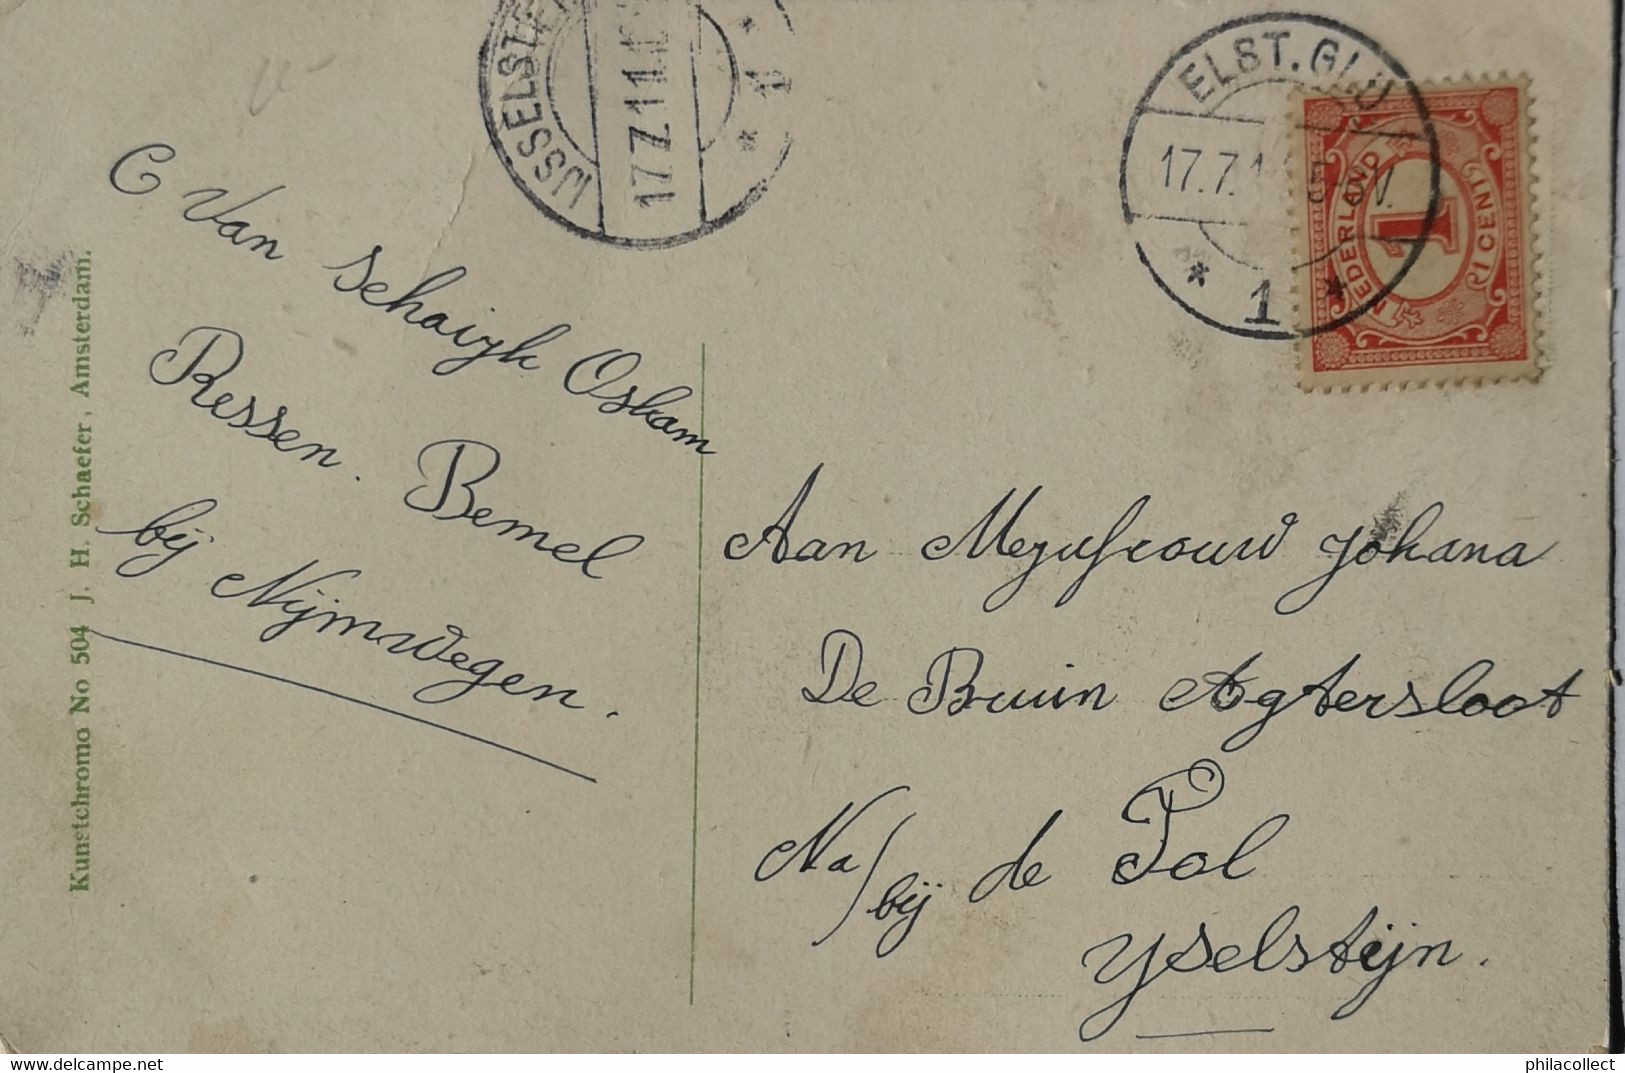 IJSSELSTE
17.7.11.
1
ELST.GLD
17.7.1
1
NEDERLAND
1
1 CENT
C Van Schaijk Oskam
Ressen. Bemel
bij Nijmwegen.
Kunstchromo No 504 J. H. Schaefer, Amsterdam.
Aan Mejufrouw Johana
De Bruin Agtersloot
Na/bij de Pol
Yselstijn.
philacollect